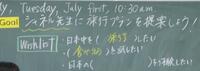 y, Tuesday, July first, 10:30 am.
Goal シェネル先生に旅行プランを提案しよう!
Wishlist
・日本中を(旅行)したい
・(食べ物)を試したい
・日本の(